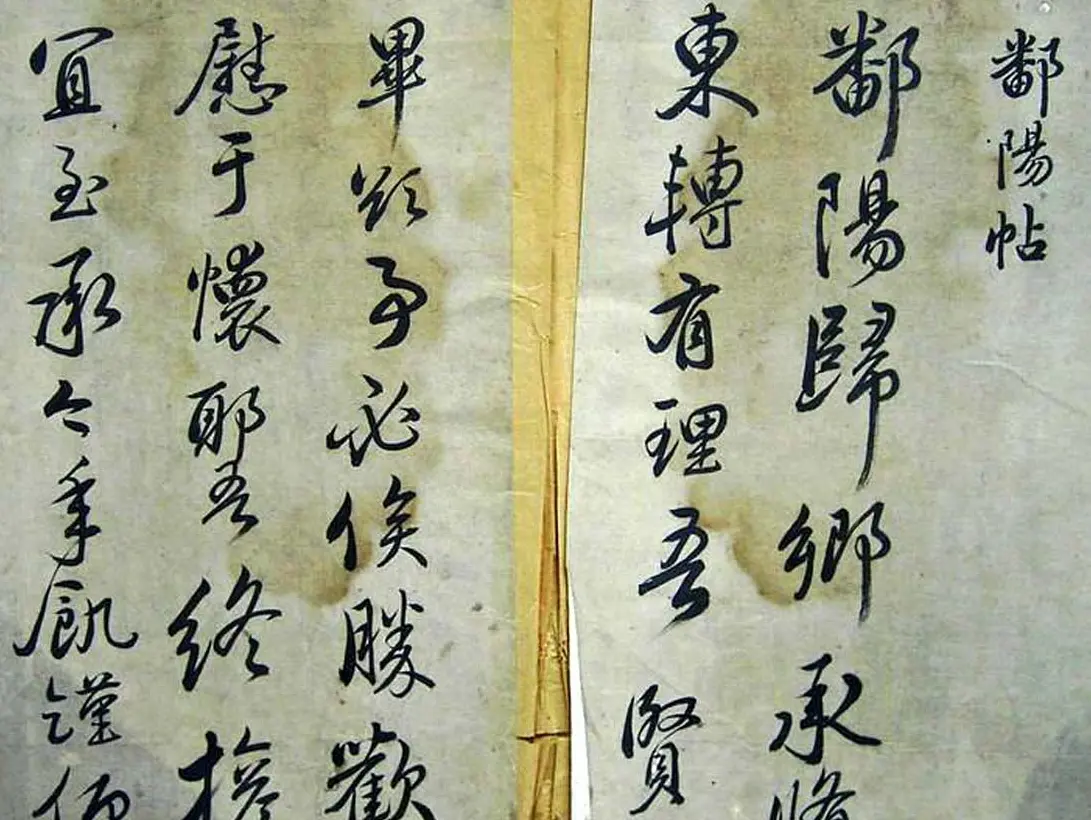 鄱陽帖
鄱陽歸鄉承將
東轉有理吾賢
畢欲予必俟勝歡
慰于懷耶吾終擔
宜至承今年飢謹